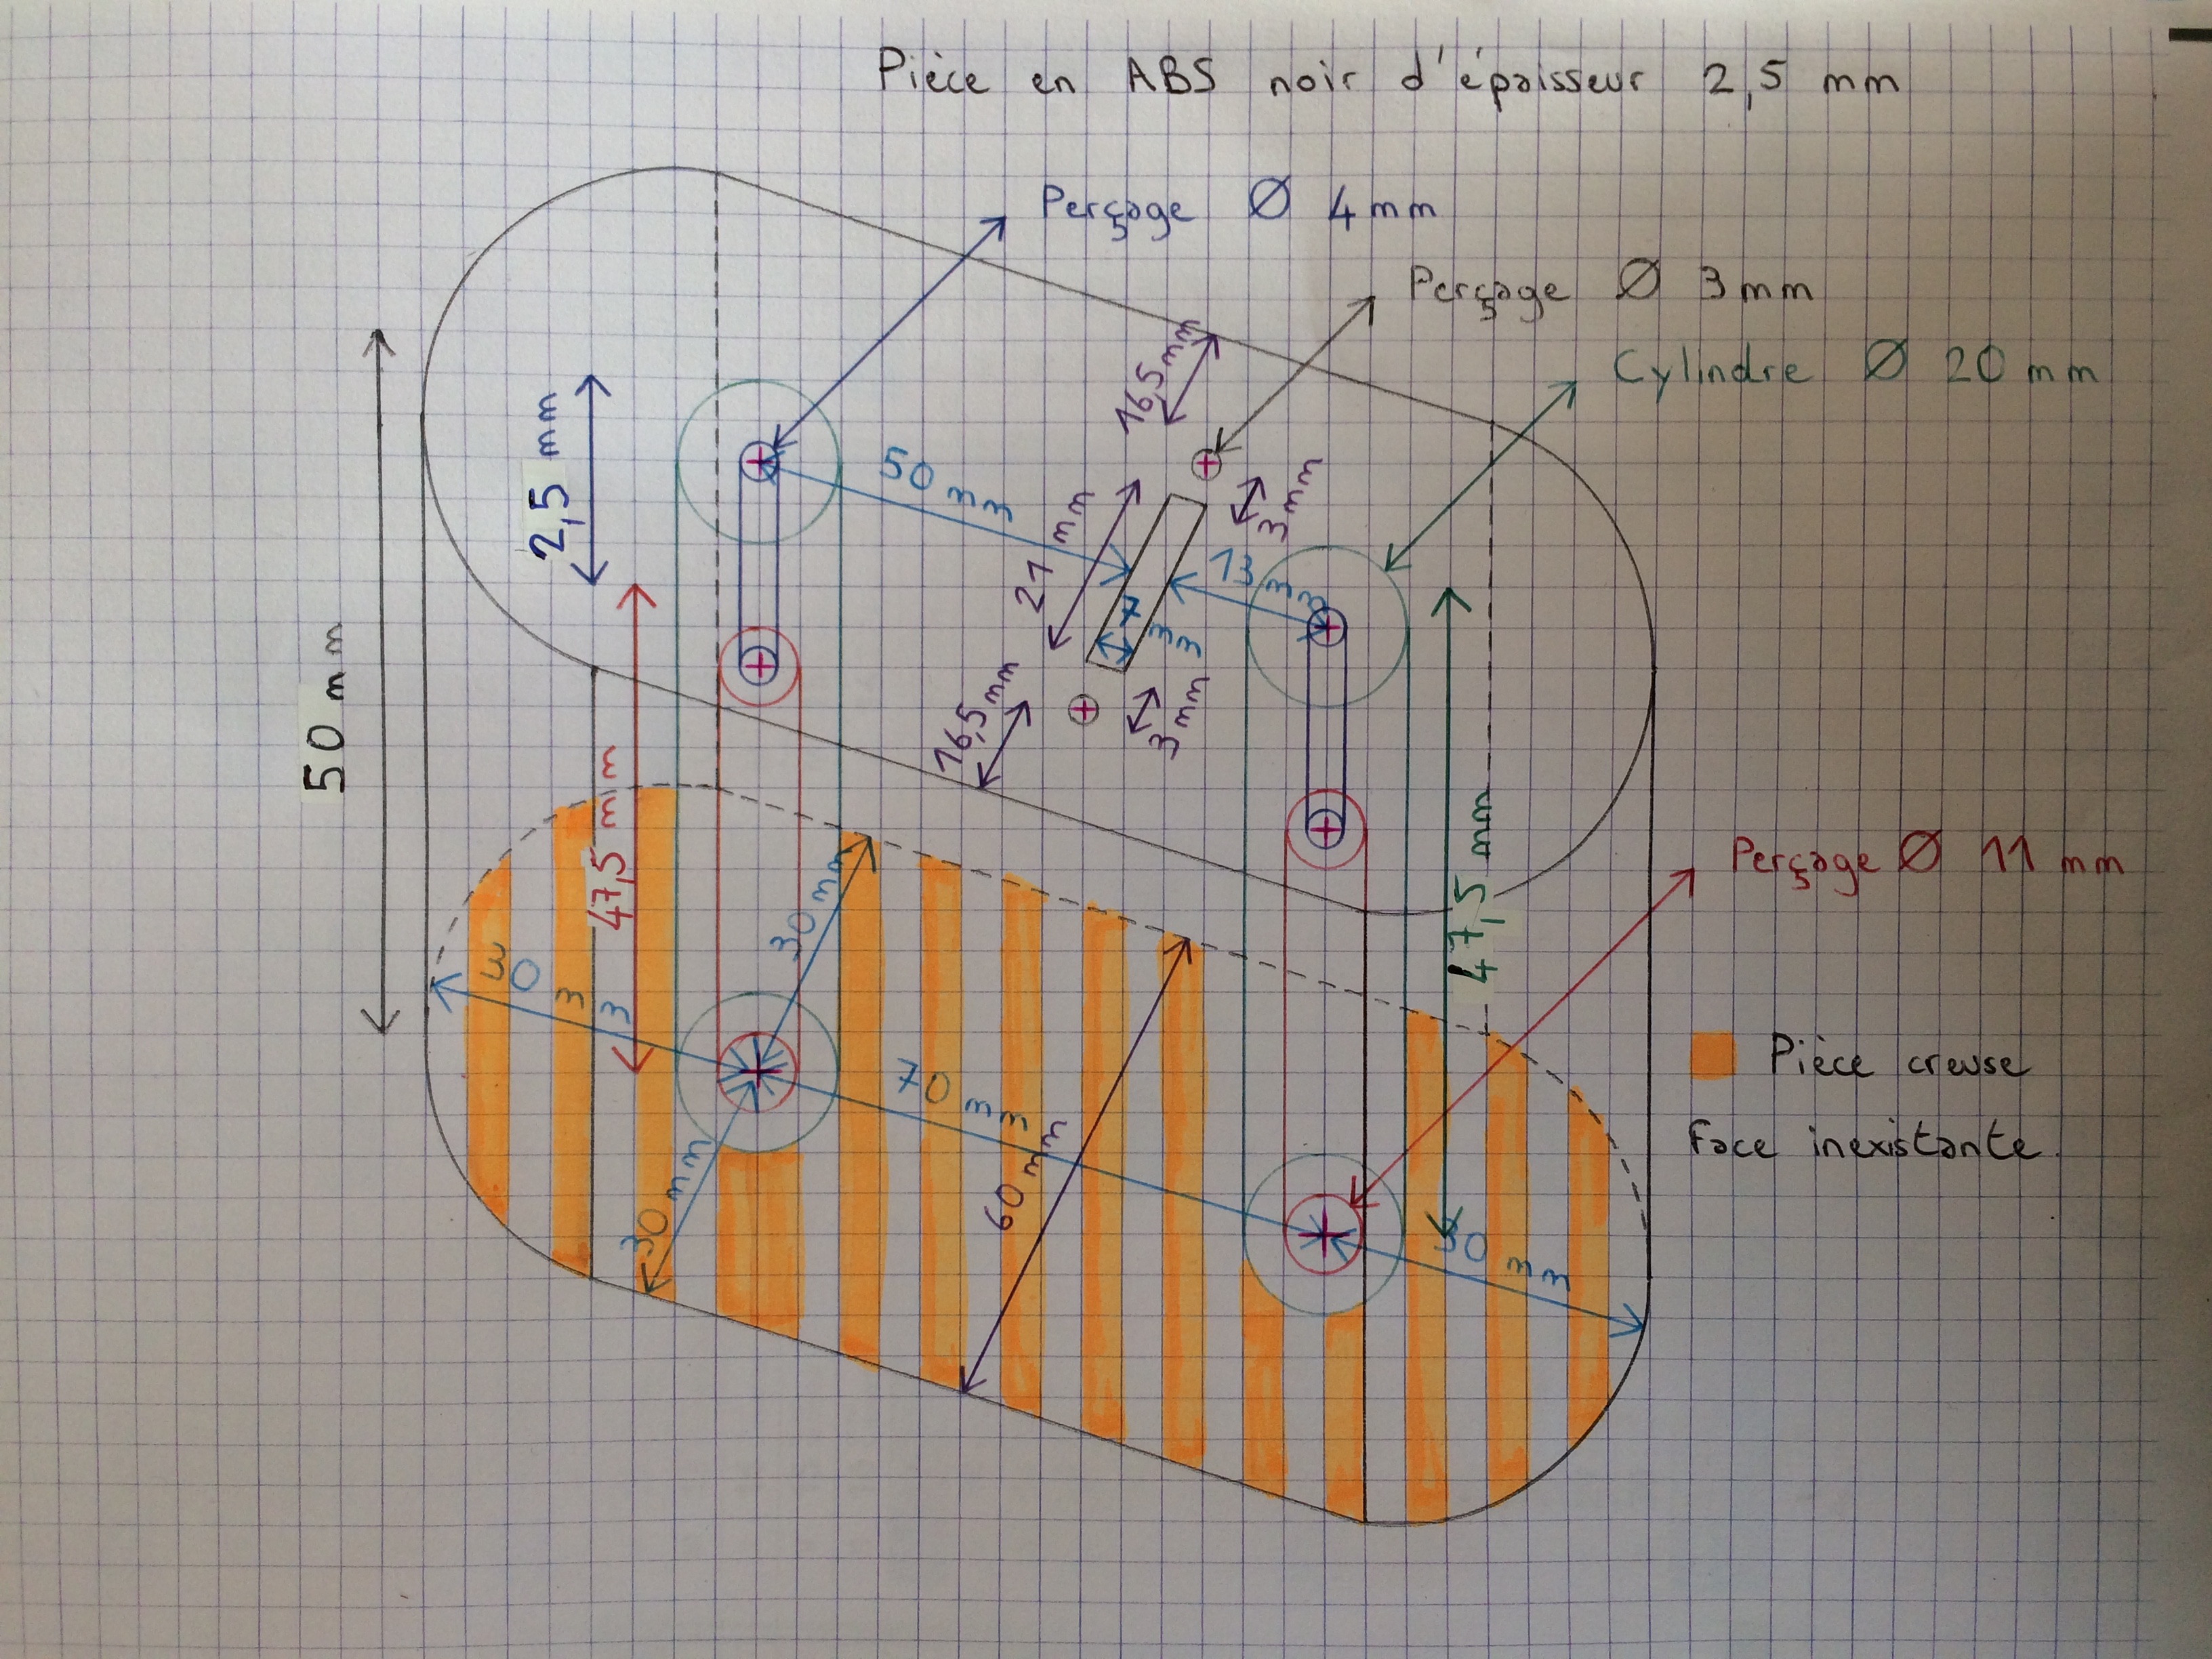 Pièce en ABS noir d'épaisseur 2,5 mm
Perçage Ø 4mm
Perçage Ø 3mm
Cylindre Ø 20 mm
16,5mm
50 mm
2,5 mm
21 mm
3mm
13 mm
7 mm
50 mm
16,5mm
3mm
47,5 mm
47,5 mm
Perçage Ø 11 mm
30 mm
30 mm
70 mm
60 mm
30 mm
30 mm
Pièce creuse
Face inexistante